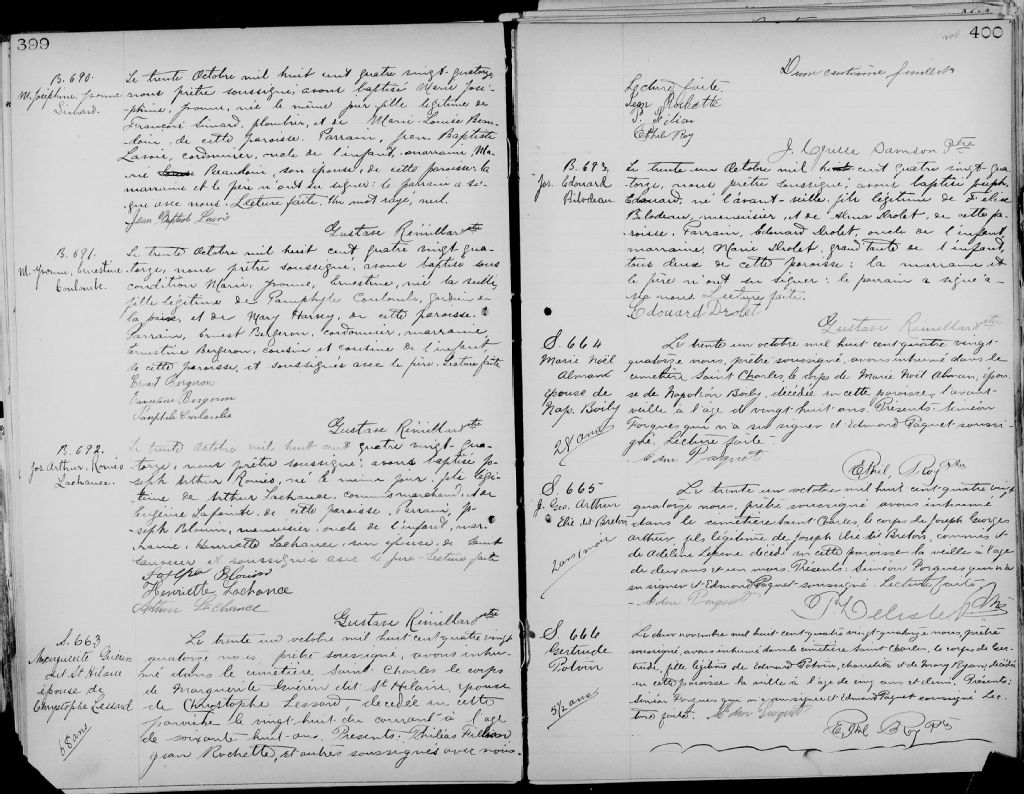 399
B. 690.
M. Joséphine, Yvonne
Simard.
Le trente Octobre mil huit cent quatre vingt-quatorze,
nous prêtre soussigné, avons baptisé Marie José-
phine, Yvonne, née le même jour fille légitime de
François Simard, plombier, et de Marie-Louise Beau-
doin, de cette paroisse. Parrain, Jean Baptiste
Lavoie, cordonnier, oncle de l'enfant, marraine, Ma-
rie Beaudoin, son épouse, de cette paroisse; la
marraine et le père n'ont su signer: le parrain a si-
gné avec nous. Lecture faite. Un mot rayé, nul.
Jean Baptiste Lavoie
Gustave Rémillard ptre
B. 691.
M. Yvonne, Ernestine
Coulombe.
Le trente Octobre mil huit cent quatre vingt qua-
torze, nous, prêtre soussigné, avons baptisé sous
condition Marie, Yvonne, Ernestine, née la veille,
fille légitime de Pamphyle Coulombe, gardien de
la paix, et de Mary Harvey, de cette paroisse.
Parrain, Ernest Bergeron, cordonnier, marraine,
Ernestine Bergeron, cousin et cousine de l'enfant
de cette paroisse, et soussignés avec le père. Lecture faite
Ernest Bergeron
Ernestine Bergeron
Pamphile Coulombe
Gustave Rémillard ptre
B. 692.
Jos. Arthur, Roméo
Lachance.
Le trente Octobre, mil huit cent quatre vingt-qua-
torze, nous prêtre soussigné, avons baptisé Jo-
seph Arthur Roméo, né le même jour, fils légi-
time de Arthur Lachance, commis marchand, et de
Eugénie Lafonte, de cette paroisse. Parrain, Jo-
seph Blouin, menuisier, oncle de l'enfant, mar-
raine, Henriette Lachance, son épouse, de Saint
Sauveur et soussignés avec le père. Lecture faite
Joseph Blouin
Henriette Lachance
Arthur Lachance
Gustave Rémillard ptre
S. 663
Marguerite Guérin
dit St Hilaire
épouse de
Chrystophe Lessard
68 ans
Le trente un octobre mil huit cent quatre vingt
quatorze nous, prêtre soussigné, avons inhu-
mé dans le cemetière Saint Charles le corps
de Marguerite Guérin dit St Hilaire, épouse
de Chrystophe Lessard, décédée en cette
paroisse le vingt huit du courant à l'age
de soixante huit ans. Présents: Philéas Fillion
Jean Rochette, et autres soussignés avec nous.
400
Deux centième feuillet
Lecture faite.
Jean Rochette
P. Filion
Ethel Roy
J. Ulysse Damson Ptre
B. 693.
Jos. Edouard
Bilodeau.
Le trente un Octobre mil huit cent quatre vingt-qua-
torze, nous prêtre soussigné, avons baptisé Joseph
Edouard, né l'avant-veille, fils légitime de Félix
Bilodeau, menuisier, et de Alma Drolet, de cette pa-
roisse. Parrain, Edouard Drolet, oncle de l'enfant,
marraine, Marie Drolet, grand'tante de l'enfant,
tous deux de cette paroisse: la marraine et
le père n'ont su signer: le parrain a signé a-
vec nous. Lecture faite.
Edouard Drolet
Gustave Rémillard ptre
S. 664
Marie Noël
Almand
épouse de
Nap. Boily
28 ans
Le trente un octobre mil huit cent quatre vingt-
quatorze nous, prêtre soussigné, avons inhumé dans le
cemetière Saint Charles, le corps de Marie Noël Alman, épou-
se de Napoléon Boily, décédée en cette paroisse, l'avant-
veille, à l'âge de vingt huit ans. Présents: Siméon
Forgues qui n'a su signer et Edmond Paquet soussi-
gné. Lecture faite.
Edm Paquet
Ethel. Roy Ptre
S. 665
J. Geo. Arthur
Elie dit Breton
2 ans 1 mois
Le trente un octobre mil huit cent quatre vingt
quatorze nous, prêtre soussigné avons inhumé
dans le cimetière Saint Charles, le corps de Joseph Georges
Arthur, fils légitime de Joseph Elie dit Breton, commis et
de Adeline Lépine décédé en cette paroisse la veille à l'age
de deux ans et un mois. Présents: Siméon Forgues qui n'a
su signer et Edmond Paquet soussigné. Lecture faite
Edm Paquet
S. 666
Gertrude
Potvin
5½ ans
Le deux novembre mil huit cent quatre vingt quatorze nous, prêtre
soussigné, avons inhumé dans le cemetière Saint Charles, le corps de Ger-
trude, fille légitime de Edouard Potvin, charretier et de Mary Ryan, décédée
en cette paroisse la veille à l'age de cinq ans et demi. Présents:
Siméon Forgues qui n'a su signer et Edmond Paquet soussigné Lec-
ture faite. Edm Paquet
Ethel. Roy Ptre